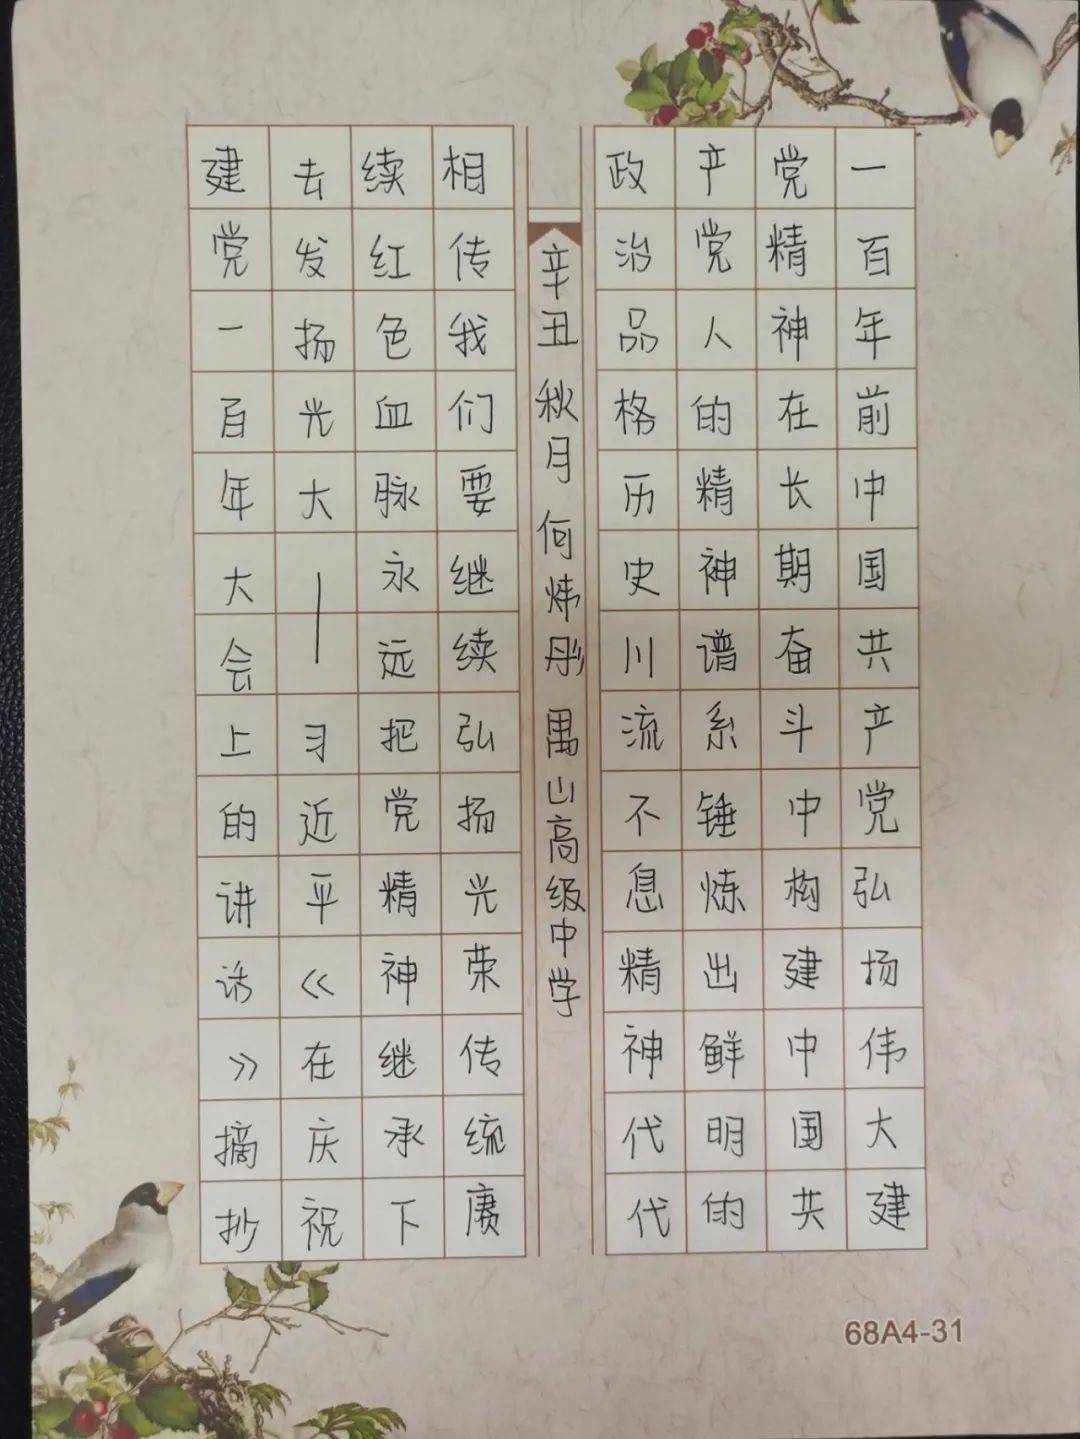 一百年前中国共产党弘扬伟大建
党精神在长期奋斗中构建中国共
产党人的精神谱系锤炼出鲜明的
政治品格历史川流不息精神代代
相传我们要继续弘扬光荣传统赓
续红色血脉永远把党精神继承下
去发扬光大——习近平《在庆祝
建党一百年大会上的讲话》摘抄
辛丑 秋月 何炜彤 禺山高级中学
68A4-31